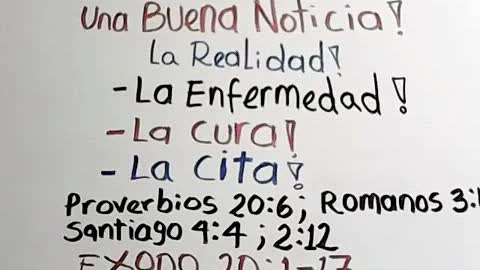 Una Buena Noticia!
La Realidad!
- La Enfermedad!
- La Cura!
- La Cita!
Proverbios 20:6; Romanos
Santiago 4:4; 2:12
EXODO 20:1-17